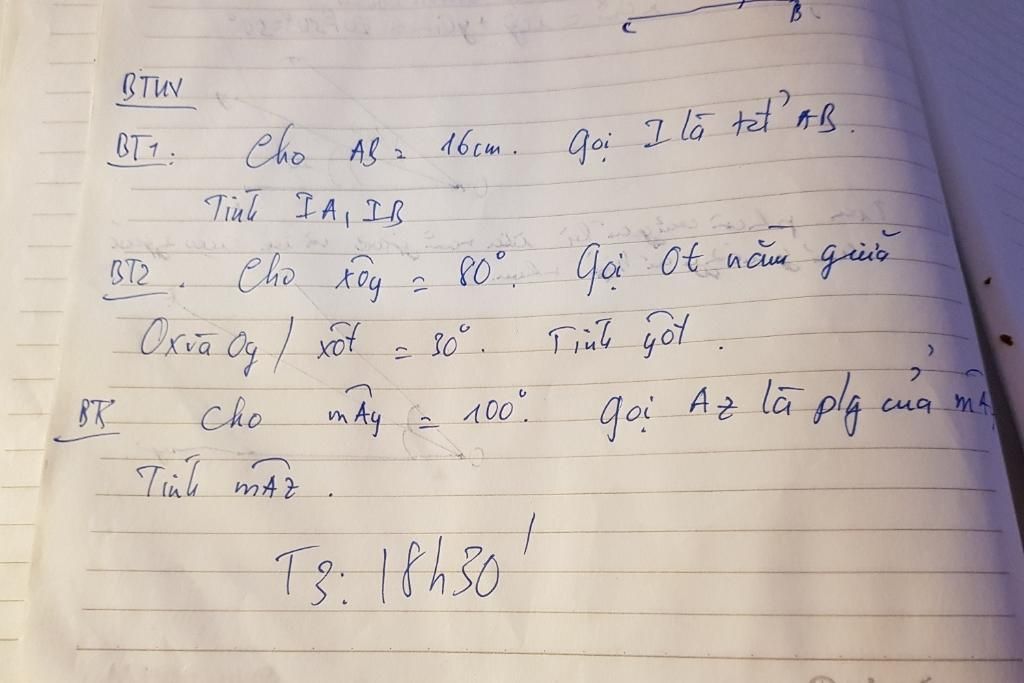 C B
BTVN
BT1: Cho AB = 16cm. Gọi I là tđ AB.
Tính IA, IB
BT2. Cho xOy = 80°. Gọi Ot nằm giữa
Ox và Oy / xOt = 30°. Tính yOt.
Cho mAy = 100°. Gọi Az là p/g của mA
Tính mAz.
T3: 18h30'